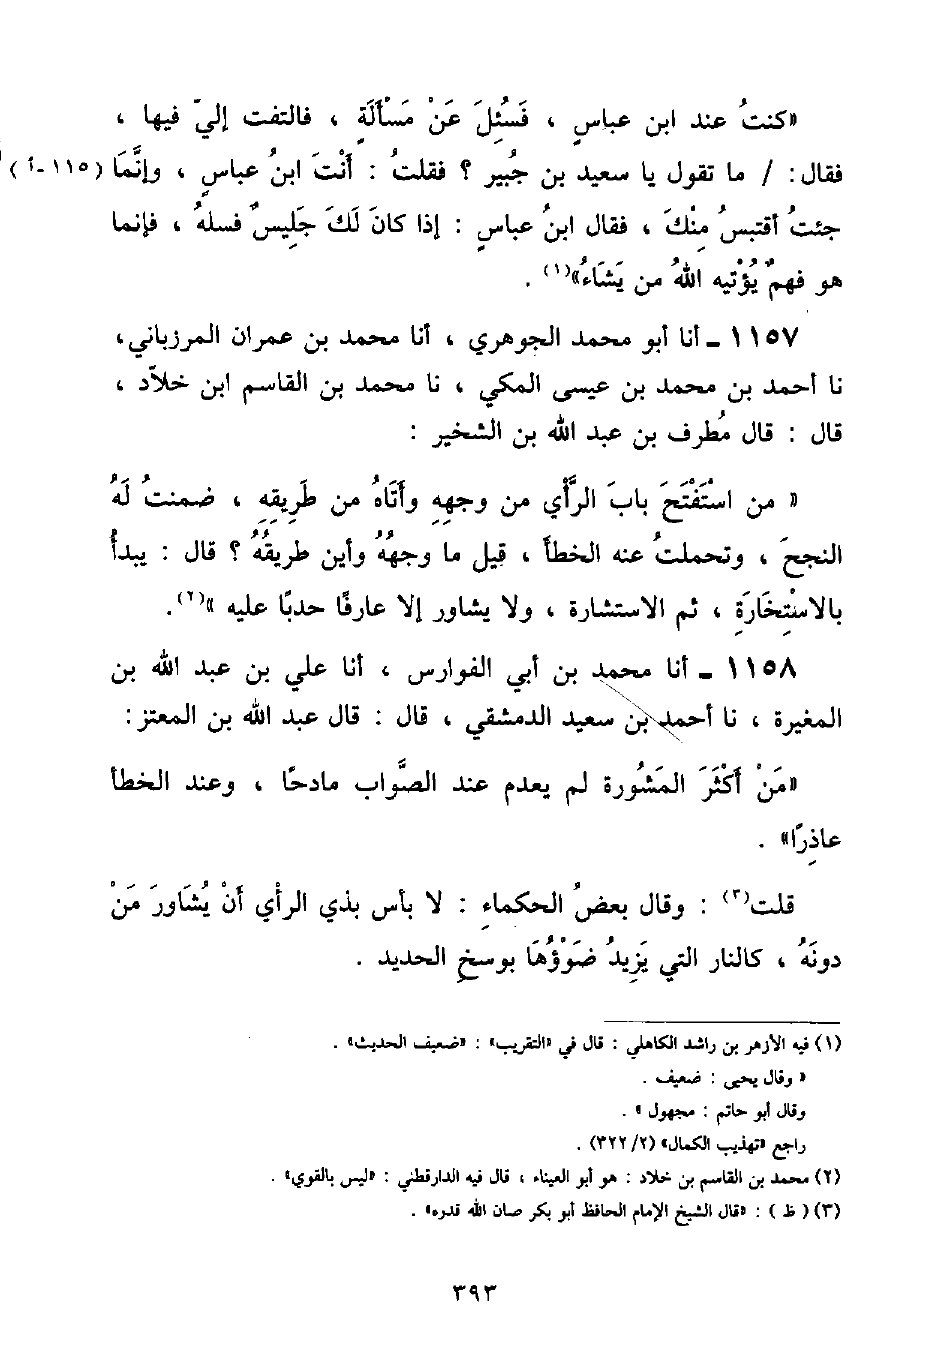 «كنتُ عند ابن عباسٍ ، فَسُئِلَ عَنْ مَسْأَلَةٍ ، فالتفت إليّ فيها ،
فقال : / ما تقول يا سعيد بن جُبير ؟ فقلتُ : أَنْتَ ابنُ عباسٍ ، وإنَّمَا (١١٥-أ)
جئتُ أقتبسُ مِنْكَ ، فقال ابنُ عباسٍ : إذا كانَ لَكَ جَلِيسٌ فسلهُ ، فإنما
هو فهمٌ يُؤْتيه اللهُ من يَشَاءُ»(١) .
١١٥٧ ـ أنا أبو محمد الجوهري ، أنا محمد بن عمران المرزباني،
نا أحمد بن محمد بن عيسى المكي ، نا محمد بن القاسم ابن خلاّد ،
قال : قال مُطرف بن عبد الله بن الشخير :
« من اسْتَفْتَحَ بابَ الرَّأْي من وجههِ وأَتَاهُ من طَرِيقِهِ ، ضمنتُ لَهُ
النجحَ ، وتحملتُ عنه الخطأ ، قيل ما وجههُ وأين طريقُهُ ؟ قال : يبدأُ
بالاسْتِخَارَةِ ، ثم الاستشارة ، ولا يشاور إلا عارفًا حدبًا عليه »(٢).
١١٥٨ ـ أنا محمد بن أبي الفوارس ، أنا علي بن عبد الله بن
المغيرة ، نا أحمد بن سعيد الدمشقي ، قال : قال عبد الله بن المعتز:
«مَنْ أَكْثَرَ المَشُورة لم يعدم عند الصَّواب مادحًا ، وعند الخطأ
عاذِرًا» .
قلت(٣) : وقال بعضُ الحكماءِ : لا بأس بذي الرأي أَنْ يُشَاورَ مَنْ
دونَهُ ، كالنار التي يَزِيدُ ضَوْؤُهَا بوسخِ الحديد .
(١) فيه الأزهر بن راشد الكاهلي : قال في «التقريب» : «ضعيف الحديث» .
« وقال يحيى : ضعيف .
وقال أبو حاتم : مجهول » .
راجع «تهذيب الكمال» (٢/ ٣٢٢) .
(٢) محمد بن القاسم بن خلاد : هو أبو العيناء ، قال فيه الدارقطني : «ليس بالقوي» .
(٣) ( ظ ) : «قال الشيخ الإمام الحافظ أبو بكر صان الله قدره» .
٣٩٣